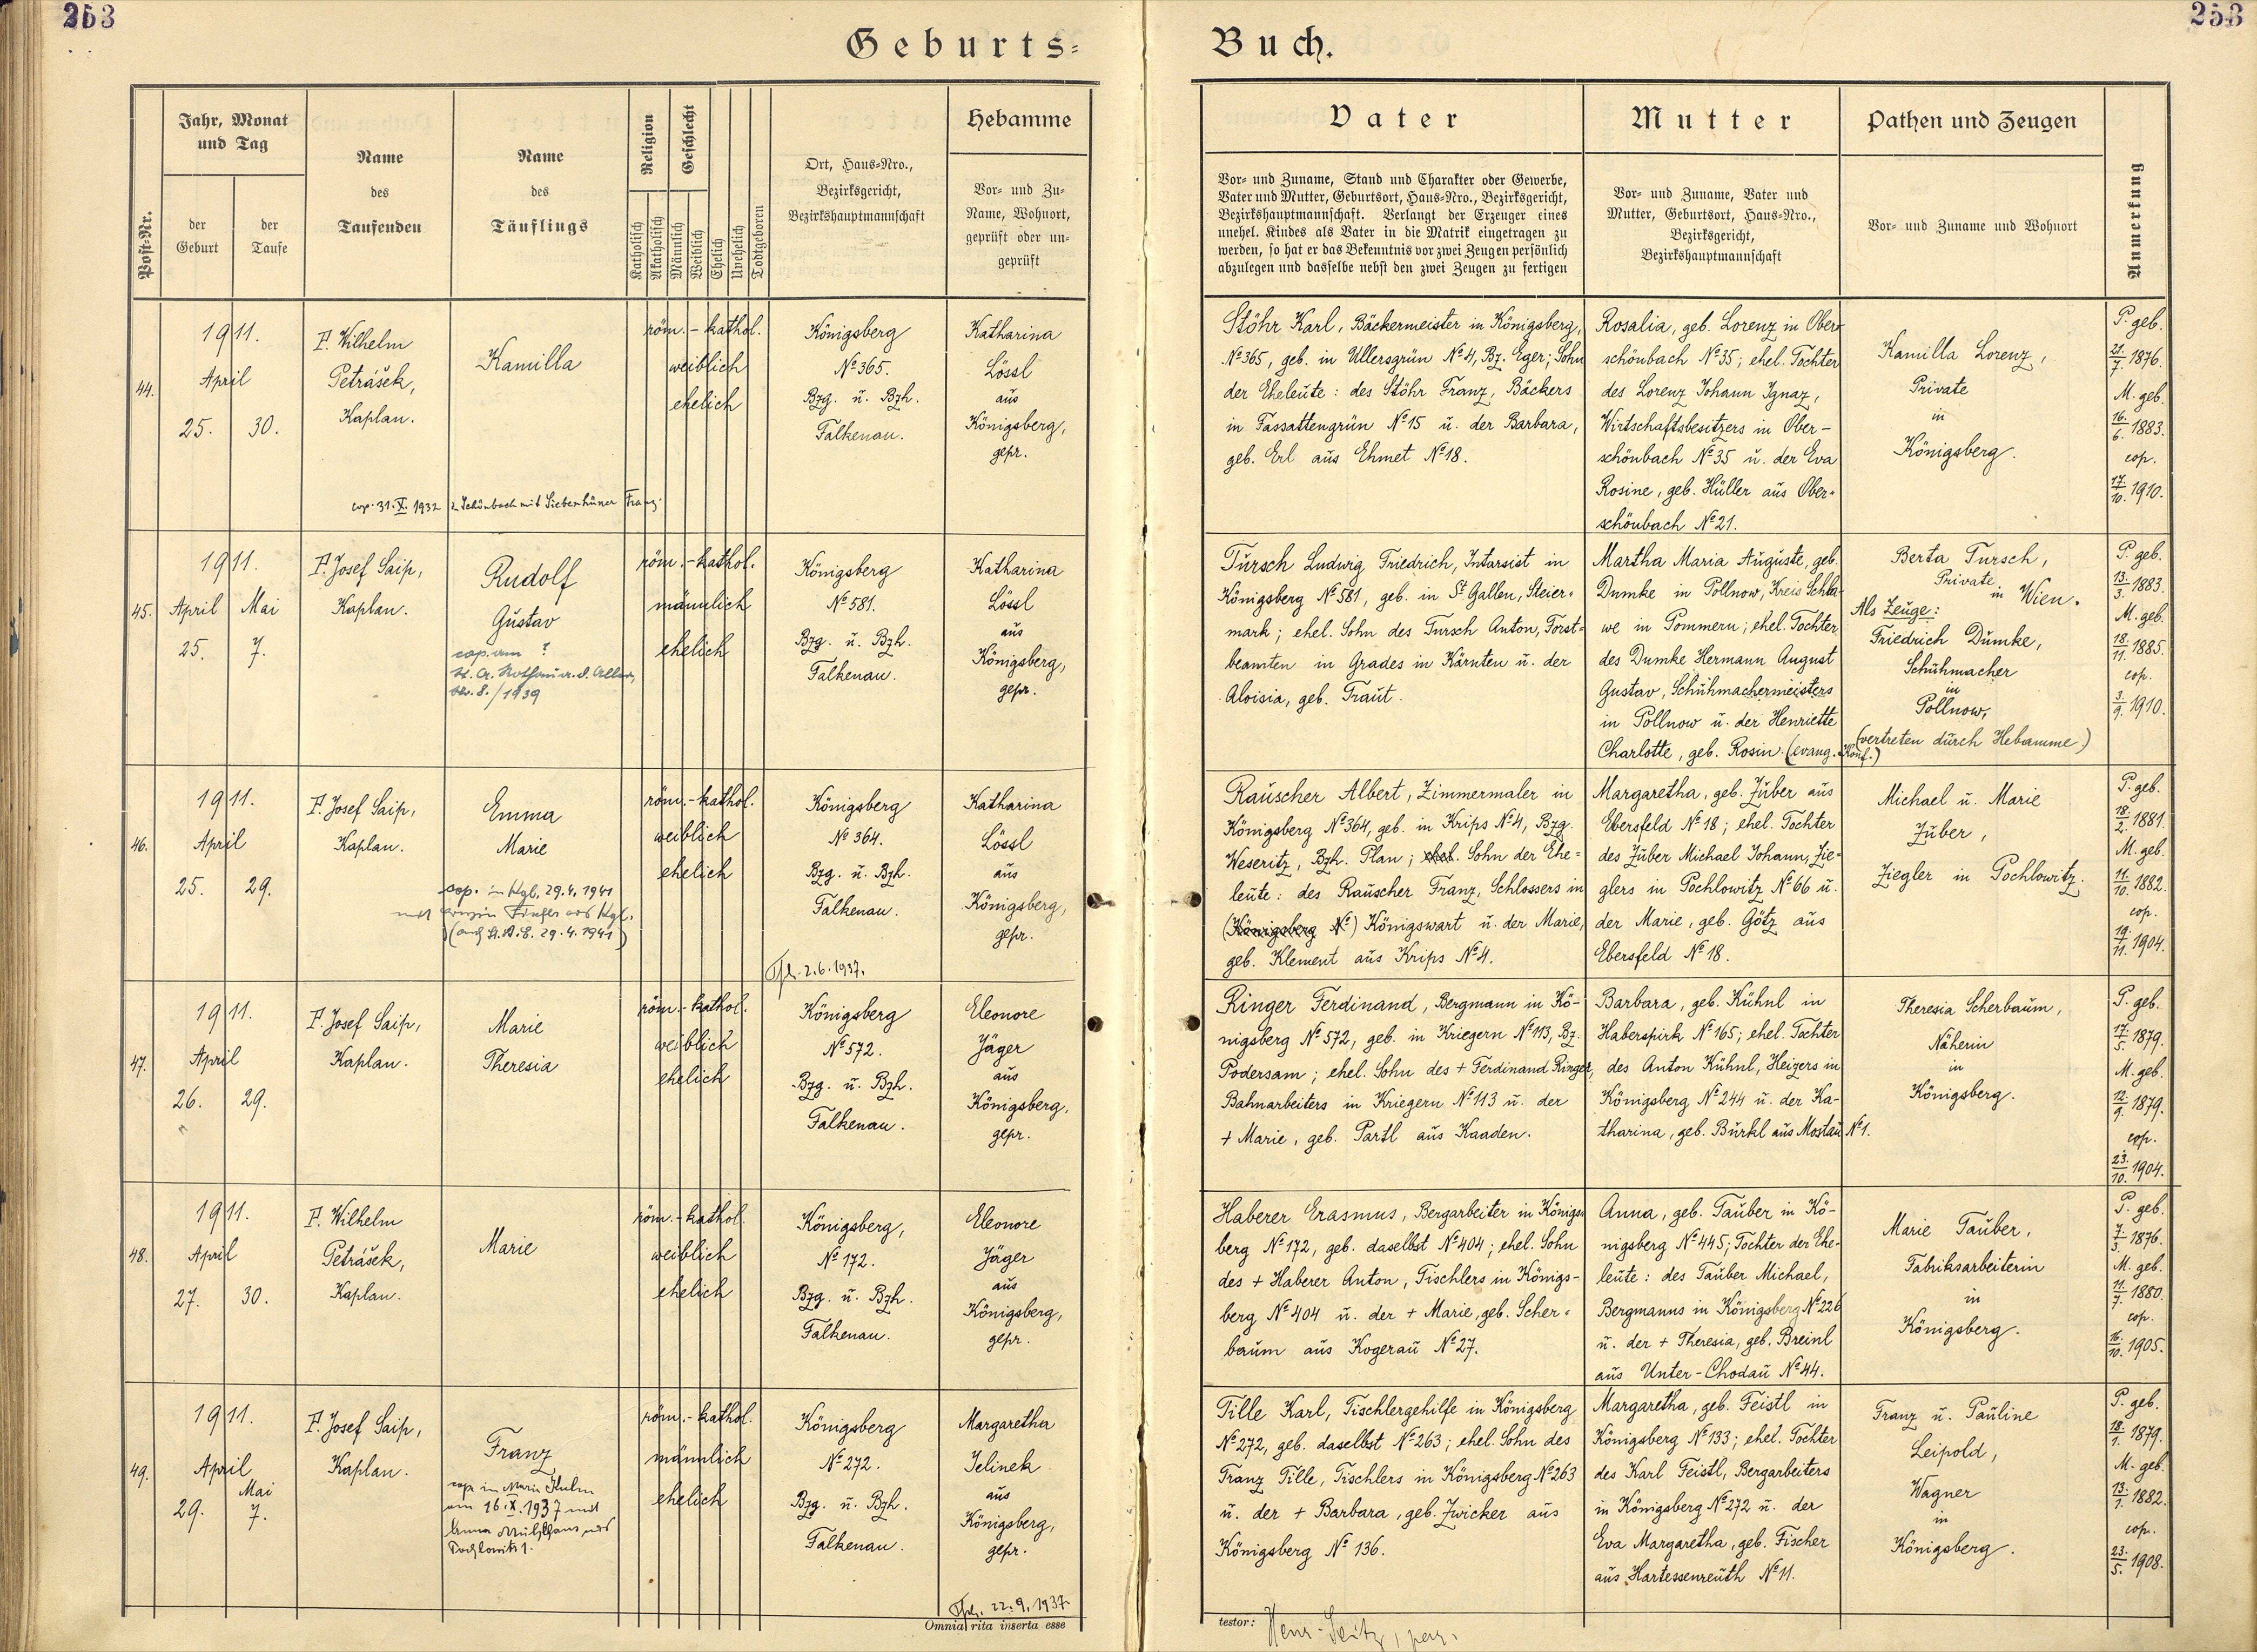 253
Geburts-
Post-Nr.
Jahr, Monat und Tag
der Geburt
der Taufe
Name des Taufenden
Name des Täuflings
Religion
Katholisch
Akatholisch
Geschlecht
Männlich
Weiblich
Ehelich
Unehelich
Todtgeboren
Ort, Haus-Nro.,
Bezirksgericht,
Bezirkshauptmannschaft
Hebamme
Vor- und Zu-
Name, Wohnort,
geprüft oder un-
geprüft
44.
1911.
April
25.
30.
P. Wilhelm
Petrášek,
Kaplan.
Kamilla
cop. 31.X. 1932 in Schönbach mit Siebenhüner Franz.
röm.-kathol.
weiblich
ehelich
Königsberg
№ 365.
Bzg. u. Bzh.
Falkenau.
Katharina
Lössl
aus
Königsberg,
gepr.
45.
1911.
April
Mai
25.
7.
P. Josef Saip,
Kaplan.
Rudolf
Gustav
cop. am ?
/1939
röm.-kathol.
männlich
ehelich
Königsberg
№ 581.
Bzg. u. Bzh.
Falkenau.
Katharina
Lössl
aus
Königsberg,
gepr.
46.
1911.
April
25.
29.
P. Josef Saip,
Kaplan.
Emma
Marie
cop. in Kgb. 29.4.1941
mit Fischer aus Kgb.
29.4.1941)
röm.-kathol.
weiblich
ehelich
Königsberg
№ 364.
Bzg. u. Bzh.
Falkenau.
2.6.1937.
Katharina
Lössl
aus
Königsberg,
gepr.
47.
1911.
April
26.
29.
P. Josef Saip,
Kaplan.
Marie
Theresia
röm.-kathol.
weiblich
ehelich
Königsberg
№ 572.
Bzg. u. Bzh.
Falkenau.
Eleonore
Jäger
aus
Königsberg,
gepr.
48.
1911.
April
27.
30.
P. Wilhelm
Petrášek,
Kaplan.
Marie
röm.-kathol.
weiblich
ehelich
Königsberg,
№ 172.
Bzg. u. Bzh.
Falkenau.
Eleonore
Jäger
aus
Königsberg,
gepr.
49.
1911.
April
Mai
29.
7.
P. Josef Saip,
Kaplan.
Franz
cop. in Maria Kulm
am 16.X.1937 mit
Anna Mühlhans aus
Pochlowitz 1.
röm.-kathol.
männlich
ehelich
Königsberg
№ 272.
Bzg. u. Bzh.
Falkenau.
Margaretha
Jelinek
aus
Königsberg,
gepr.
22.9.1937
Omnia rita inserta esse
253
Buch.
Vater
Vor- und Zuname, Stand und Charakter oder Gewerbe,
Vater und Mutter, Geburtsort, Haus-Nro., Bezirksgericht,
Bezirkshauptmannschaft. Verlangt der Erzeuger eines
unehel. Kindes als Vater in die Matrik eingetragen zu
werden, so hat er das Bekenntnis vor zwei Zeugen persönlich
abzulegen und dasselbe nebst den zwei Zeugen zu fertigen
Mutter
Vor- und Zuname, Vater und
Mutter, Geburtsort, Haus-Nro.,
Bezirksgericht,
Bezirkshauptmannschaft
Pathen und Zeugen
Vor- und Zuname und Wohnort
Anmerkung
Stöhr Karl, Bäckermeister in Königsberg,
№ 365, geb. in Ullersgrün № 4, Bz. Eger; Sohn
der Eheleute: des Stöhr Franz, Bäckers
in Fassattengrün № 15 u. der Barbara,
geb. Erl aus Ehmet № 18.
Rosalia, geb. Lorenz in Ober-
schönbach № 35; ehel. Tochter
des Lorenz Johann Ignaz,
Wirtschaftsbesitzers in Ober-
schönbach № 35 u. der Eva
Rosine, geb. Hüller aus Ober-
schönbach № 21.
Kamilla Lorenz,
Private
in
Königsberg.
P. geb.
21./7. 1876.
M. geb.
16./6. 1883.
cop.
17./10. 1910.
Tursch Ludwig Friedrich, Intarsist in
Königsberg № 581, geb. in St Gallen, Steier-
mark; ehel. Sohn des Tursch Anton, Forst-
beamten in Grades in Kärnten u. der
Aloisia, geb. Traut.
Martha Maria Auguste, geb.
Dumke in Pollnow, Kreis Schla-
we in Pommern; ehel. Tochter
des Dumke Hermann August
Gustav, Schuhmachermeisters
in Pollnow u. der Henriette
Charlotte, geb. Rosin. (evang. Konf.)
Berta Tursch,
Private
in Wien.
Als Zeuge:
Friedrich Dumke,
Schuhmacher
in
Pollnow,
(vertreten durch Hebamme.)
P. geb.
13./3. 1883.
M. geb.
18./11. 1885.
cop.
3./9. 1910.
Rauscher Albert, Zimmermaler in
Königsberg № 364, geb. in Krips № 4, Bzg.
Weseritz, Bzh. Plan; ehel. Sohn der Ehe-
leute: des Rauscher Franz, Schlossers in
(Königsberg №) Königswart u. der Marie,
geb. Klement aus Krips № 4.
Margaretha, geb. Zuber aus
Ebersfeld № 18; ehel. Tochter
des Zuber Michael Johann, Zie-
glers in Pochlowitz № 66 u.
der Marie, geb. Götz aus
Ebersfeld № 18.
Michael u. Marie
Zuber,
Ziegler in Pochlowitz.
P. geb.
18./2. 1881.
M. geb.
11./10. 1882.
cop.
19./11. 1904.
Ringer Ferdinand, Bergmann in Kö-
nigsberg № 572, geb. in Kriegern № 113, Bz.
Podersam; ehel. Sohn des + Ferdinand Ringer,
Bahnarbeiters in Kriegern № 113 u. der
+ Marie, geb. Partl aus Kaaden.
Barbara, geb. Kühnl in
Haberspirk № 165; ehel. Tochter
des Anton Kühnl, Heizers in
Königsberg № 244 u. der Ka-
tharina, geb. Bürkl aus Mostau № 1.
Theresia Scherbaum,
Näherin
in
Königsberg.
P. geb.
17./5. 1879.
M. geb.
12./9. 1879.
cop.
23./10. 1904.
Haberer Erasmus, Bergarbeiter in Königs-
berg № 172, geb. daselbst № 404; ehel. Sohn
des + Haberer Anton, Tischlers in Königs-
berg № 404 u. der + Marie, geb. Scher-
baum aus Kogerau № 27.
Anna, geb. Tauber in Kö-
nigsberg № 445; Tochter der Ehe-
leute: des Tauber Michael,
Bergmanns in Königsberg № 226
u. der + Theresia, geb. Breinl
aus Unter-Chodau № 44.
Marie Tauber,
Fabriksarbeiterin
in
Königsberg.
P. geb.
7./3. 1876.
M. geb.
11./7. 1880.
cop.
16./10. 1905.
Tille Karl, Tischlergehilfe in Königsberg
№ 272, geb. daselbst № 263; ehel. Sohn des
Franz Tille, Tischlers in Königsberg № 263
u. der + Barbara, geb. Zwicker aus
Königsberg № 136.
Margaretha, geb. Feistl in
Königsberg № 133; ehel. Tochter
des Karl Feistl, Bergarbeiters
in Königsberg № 272 u. der
Eva Margaretha, geb. Fischer
aus Hartessenreuth № 11.
Franz u. Pauline
Leipold,
Wagner
in
Königsberg.
P. geb.
18./1. 1879.
M. geb.
13./1. 1882.
cop.
23./5. 1908.
testor: